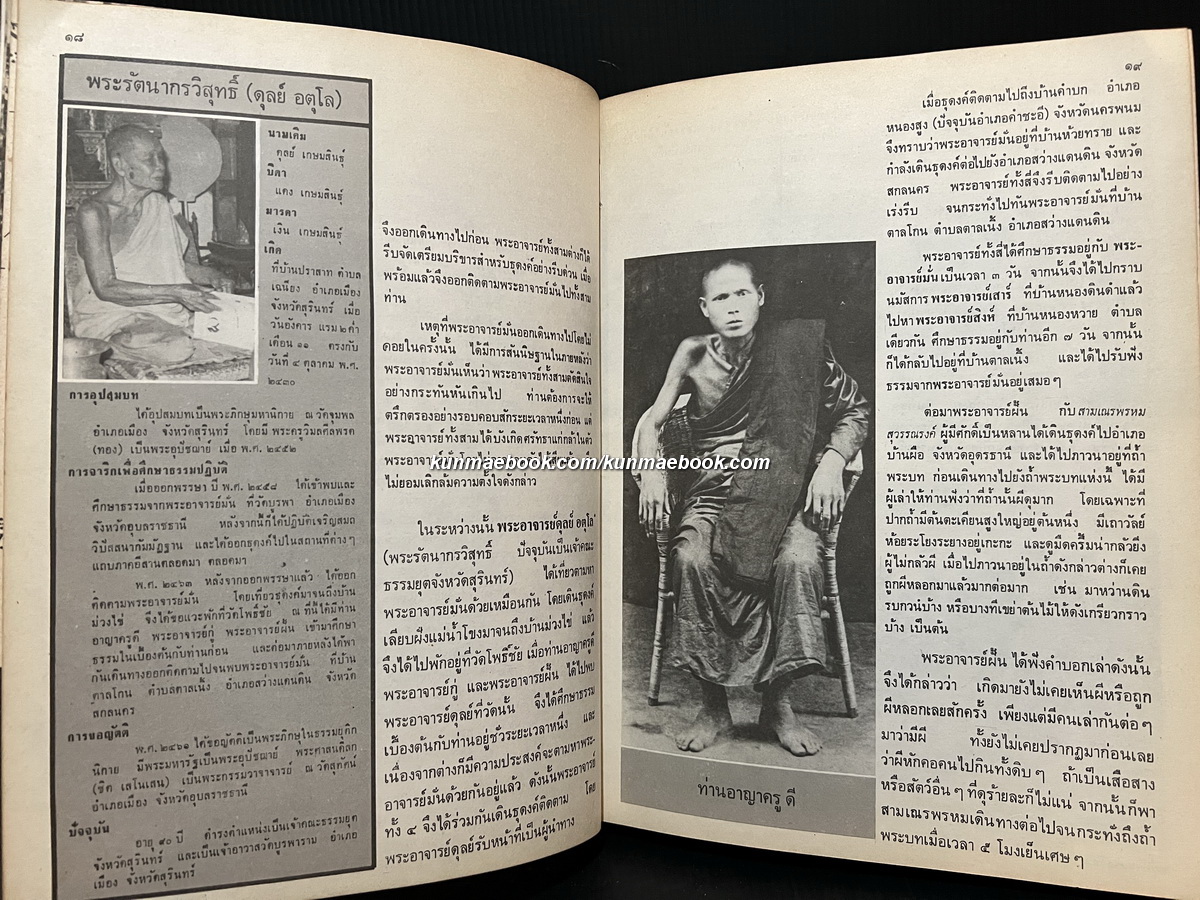 ๑๘
พระรัตนากรวิสุทธิ์ (ดุลย์ อตุโล)
นามเดิม
ดุลย์ เกษมสินธุ์
บิดา
แดง เกษมสินธุ์
มารดา
เงิน เกษมสินธุ์
เกิด
ที่บ้านปราสาท ตำบล
เฉนียง อำเภอเมือง
จังหวัดสุรินทร์ เมื่อ
วันอังคาร แรม ๒ ค่ำ
เดือน ๑๑ ตรงกับ
วันที่ ๔ ตุลาคม พ.ศ.
๒๔๓๐
การอุปสมบท
ได้อุปสมบทเป็นพระภิกษุมหานิกาย ณ วัดจุมพล
อำเภอเมือง จังหวัดสุรินทร์ โดยมี พระครูวิมลศีลพรต
(ทอง) เป็นพระอุปัชฌาย์ เมื่อ พ.ศ. ๒๔๕๒
การจาริกเพื่อศึกษาธรรมปฏิบัติ
เมื่อออกพรรษา ปี พ.ศ. ๒๔๕๘ ได้เข้าพบและ
ศึกษาธรรมจากพระอาจารย์มั่น ที่วัดบูรพา อำเภอเมือง
จังหวัดอุบลราชธานี หลังจากนี้ก็ได้ปฏิบัติเจริญสมถ
วิปัสสนากัมมัฏฐาน และได้ออกธุดงค์ไปในสถานที่ต่างๆ
แถบภาคอีสานตลอดมา
พ.ศ. ๒๔๖๓ หลังจากออกพรรษาแล้ว ได้ออก
ติดตามพระอาจารย์มั่น โดยเที่ยวธุดงค์มาจนถึงบ้าน
ม่วงไข่ จึงได้ขอแวะพักที่วัดโพธิ์ชัย ณ ที่นี้ได้มีท่าน
อาญาครูดี พระอาจารย์กู่ พระอาจารย์ฝั้น เข้ามาศึกษา
ธรรมในเบื้องต้นกับท่านก่อน และต่อมาภายหลังได้พา
กันเดินทางออกติดตามไปจนพบพระอาจารย์มั่น ที่บ้าน
ตาลโกน ตำบลตาลเนิ้ง อำเภอสว่างแดนดิน จังหวัด
สกลนคร
การขอญัตติ
พ.ศ. ๒๔๖๑ ได้ขอญัตติเป็นพระภิกษุในธรรมยุติก
นิกาย มีพระมหารัฐเป็นพระอุปัชฌาย์ พระศาสนดิลก
(ชิต เสโนเสน) เป็นพระกรรมวาจาจารย์ ณ วัดสุทัศน์
อำเภอเมือง จังหวัดอุบลราชธานี
ปัจจุบัน
อายุ ๙๐ ปี ดำรงตำแหน่งเป็นเจ้าคณะธรรมยุต
จังหวัดสุรินทร์ และเป็นเจ้าอาวาสวัดบูรพาราม อำเภอ
เมือง จังหวัดสุรินทร์
จึงออกเดินทางไปก่อน พระอาจารย์ทั้งสามต่างก็ได้
รีบจัดเตรียมบริขารสำหรับธุดงค์อย่างรีบด่วน เมื่อ
พร้อมแล้วจึงออกติดตามพระอาจารย์มั่นไปทั้งสาม
ท่าน
เหตุที่พระอาจารย์มั่นออกเดินทางไปโดยไม่
คอยในครั้งนั้น ได้มีการสันนิษฐานในภายหลังว่า
พระอาจารย์มั่นเห็นว่า พระอาจารย์ทั้งสามตัดสินใจ
อย่างกระทันหันเกินไป ท่านต้องการจะให้
ตรึกตรองอย่างรอบคอบสักระยะเวลาหนึ่งก่อน แต่
พระอาจารย์ทั้งสามได้บังเกิดศรัทธาแก่กล้าในตัว
ไม่ยอมเลิกล้มความตั้งใจดังกล่าว
ในระหว่างนั้น พระอาจารย์ดุลย์ อตุโล
(พระรัตนากรวิสุทธิ์ ปัจจุบันเป็นเจ้าคณะ
ธรรมยุตจังหวัดสุรินทร์) ได้เที่ยวตามหา
พระอาจารย์มั่นด้วยเหมือนกัน โดยเดินธุดงค์
เลียบฝั่งแม่น้ำโขงมาจนถึงบ้านม่วงไข่ แล้ว
จึงได้ไปพักอยู่ที่วัดโพธิ์ชัย เมื่อท่านอาญาครูดี
พระอาจารย์กู่ และพระอาจารย์ฝั้น ได้ไปพบ
พระอาจารย์ดุลย์ที่วัดนั้น จึงได้ศึกษาธรรม
เบื้องต้นกับท่านอยู่ชั่วระยะเวลาหนึ่ง และ
เนื่องจากต่างก็มีความประสงค์จะตามหาพระ-
อาจารย์มั่นด้วยกันอยู่แล้ว ดังนั้นพระอาจารย์
ทั้ง ๔ จึงได้ร่วมกันเดินธุดงค์ติดตาม โดย
พระอาจารย์ดุลย์รับหน้าที่เป็นผู้นำทาง
kunmaebook.com/kunmaebook.com
ท่านอาญาครู ดี
๑๙
เมื่อธุดงค์ติดตามไปถึงบ้านคำบก อำเภอ
หนองสูง (ปัจจุบันอำเภอคำชะอี) จังหวัดนครพนม
จึงทราบว่าพระอาจารย์มั่นอยู่ที่บ้านห้วยทราย และ
กำลังเดินธุดงค์ต่อไปยังอำเภอสว่างแดนดิน จังหวัด
สกลนคร พระอาจารย์ทั้งสี่จึงรีบติดตามไปอย่าง
เร่งรีบ จนกระทั่งไปทันพระอาจารย์มั่นที่บ้าน
ตาลโกน ตำบลตาลเนิ้ง อำเภอสว่างแดนดิน
พระอาจารย์ทั้งสี่ได้ศึกษาธรรมอยู่กับ พระ-
อาจารย์มั่น เป็นเวลา ๓ วัน จากนั้นจึงได้ไปกราบ
นมัสการ พระอาจารย์เสาร์ ที่บ้านหนองดินดำแล้ว
ไปหา พระอาจารย์สิงห์ ที่บ้านหนองหวาย ตำบล
เดียวกัน ศึกษาธรรมอยู่กับท่านอีก ๗ วัน จากนั้น
ก็ได้กลับไปอยู่ที่บ้านตาลเนิ้ง และได้ไปรับฟัง
ธรรมจากพระอาจารย์มั่นอยู่เสมอๆ
ต่อมาพระอาจารย์ฝั้น กับ สามเณรพรหม
สุวรรณรงค์ ผู้มีศักดิ์เป็นหลานได้เดินธุดงค์ไปอำเภอ
บ้านผือ จังหวัดอุดรธานี และได้ไปภาวนาอยู่ที่ถ้ำ
พระบท ก่อนเดินทางไปยังถ้ำพระบทแห่งนี้ ได้มี
ผู้เล่าให้ท่านฟังว่าที่ถ้ำนั้นผีดุมาก โดยเฉพาะที่
ปากถ้ำมีต้นตะเคียนสูงใหญ่อยู่ต้นหนึ่ง มีเถาวัลย์
ห้อยระโยงระยางอยู่เกะกะ และดูมืดครึ้มน่ากลัวยิ่ง
ผู้ไม่กลัวผี เมื่อไปภาวนาอยู่ในถ้ำดังกล่าวต่างก็เคย
ถูกผีหลอกมาแล้วมากต่อมาก เช่น มาหว่านดิน
รบกวนบ้าง หรือบางทีเขย่าต้นไม้ให้ดังเกรียวกราว
บ้าง เป็นต้น
พระอาจารย์ฝั้น ได้ฟังคำบอกเล่าดังนั้น
จึงได้กล่าวว่า เกิดมายังไม่เคยเห็นผีหรือถูก
ผีหลอกเลยสักครั้ง เพียงแต่มีคนเล่ากันต่อๆ
มาว่ามีผี ทั้งยังไม่เคยปรากฏมาก่อนเลย
ว่าผีหักคอคนไปกินทั้งดิบๆ ถ้าเป็นเสือสาง
หรือสัตว์อื่นๆ ที่ดุร้ายละก็ไม่แน่ จากนั้นก็พา
สามเณรพรหมเดินทางต่อไปจนกระทั่งถึงถ้ำ
พระบทเมื่อเวลา ๕ โมงเย็นเศษๆ